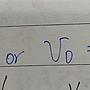 or V₀ =